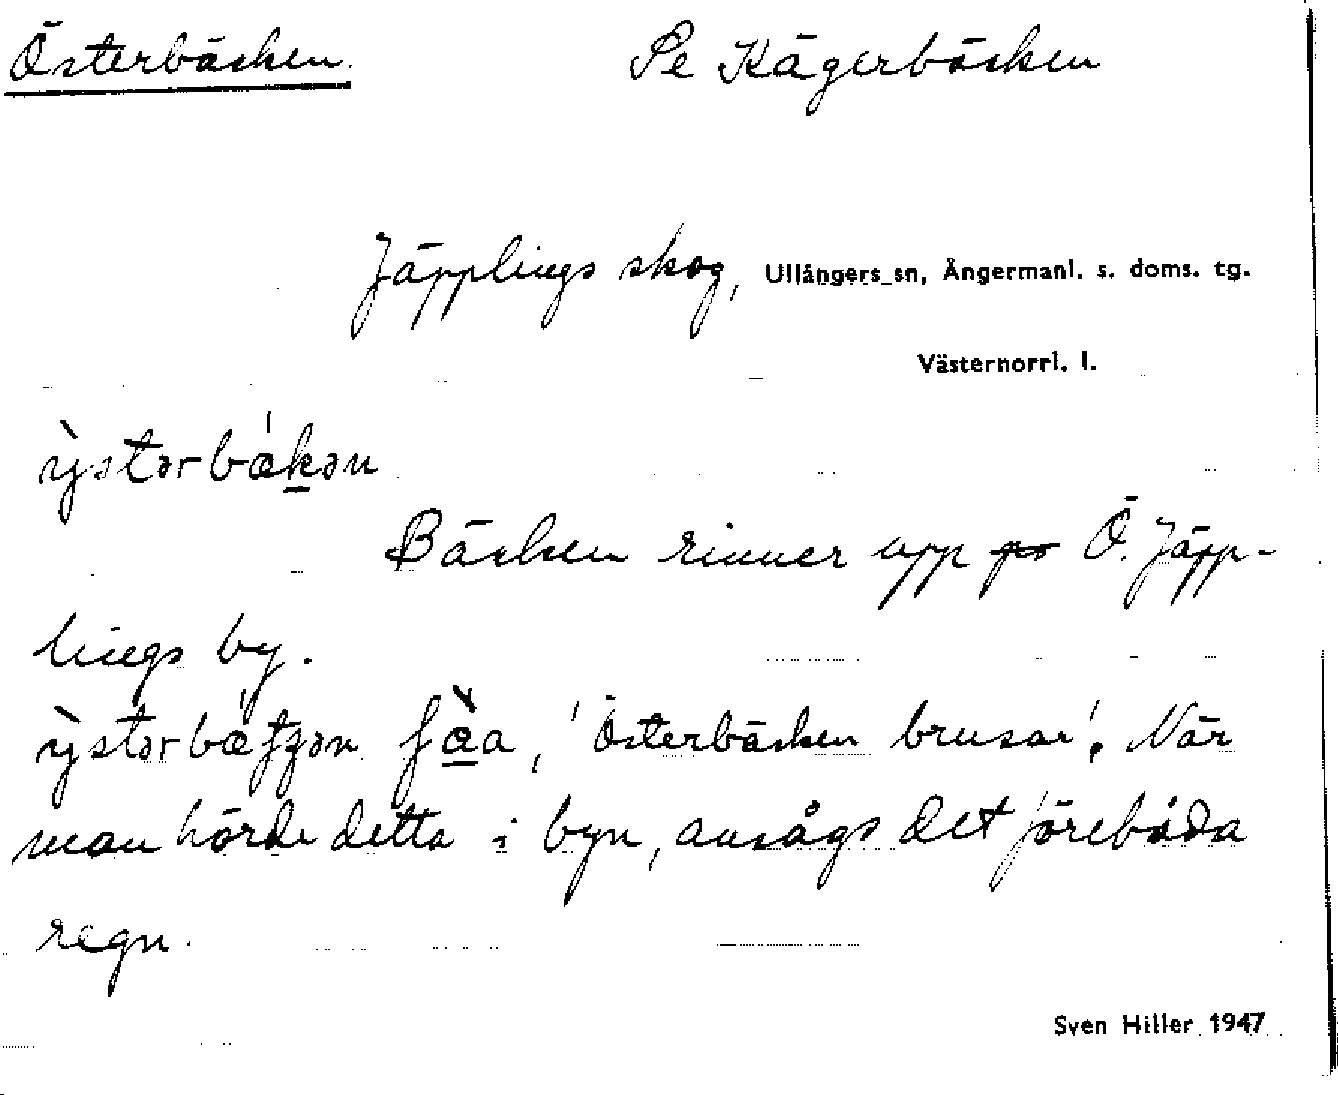 Österbäcken. Se Kägerbäcken
Jäpplings skog, Ullångers sn, Ångermanl. s. doms. tg.
Västernorrl. l.
ỳstərbǽkən
Bäcken rinner upp Ö. Jäpp-
lings by.
ỳstərbǽʃʒən fæ̀a, 'Österbäcken brusar'. När
man hörde detta i byn, ansågs det förebåda
regn.
Sven Hiller 1947